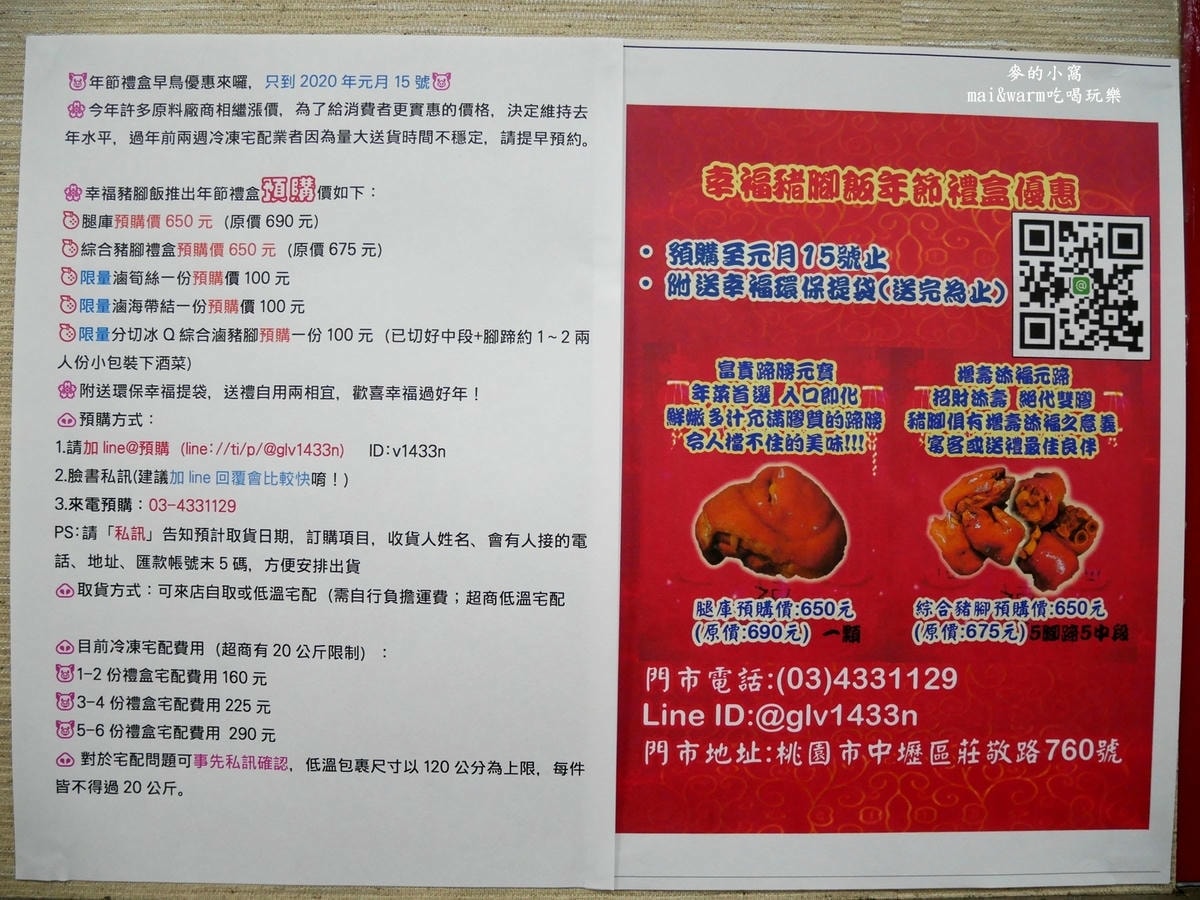 年節禮盒早鳥優惠來囉，只到 2020 年元月 15 號
今年許多原料廠商相繼漲價，為了給消費者更實惠的價格，決定維持去
年水平，過年前兩週冷凍宅配業者因為量大送貨時間不穩定，請提早預約。
幸福豬腳飯推出年節禮盒預購價如下：
腿庫預購價 650 元（原價 690 元）
綜合豬腳禮盒預購價 650 元（原價 675 元）
限量滷筍絲一份預購價 100 元
限量滷海帶結一份預購價 100 元
限量分切冰 Q 綜合滷豬腳預購一份 100 元（已切好中段+腳蹄約 1～2 兩
人份小包裝下酒菜）
附送環保幸福提袋，送禮自用兩相宜，歡喜幸福過好年！
預購方式：
1.請加 line@預購（line://ti/p/@glv1433n） ID:v1433n
2.臉書私訊(建議加 line 回覆會比較快唷！)
3.來電預購：03-4331129
PS:請「私訊」告知預計取貨日期，訂購項目，收貨人姓名、會有人接的電
話、地址、匯款帳號末 5 碼，方便安排出貨
取貨方式：可來店自取或低溫宅配（需自行負擔運費；超商低溫宅配
目前冷凍宅配費用（超商有 20 公斤限制）：
1-2 份禮盒宅配費用 160 元
3-4 份禮盒宅配費用 225 元
5-6 份禮盒宅配費用 290 元
對於宅配問題可事先私訊確認，低溫包裹尺寸以 120 公分為上限，每件
皆不得過 20 公斤。
麥的小窩
mai&warm吃喝玩樂
幸福豬腳飯年節禮盒優惠
• 預購至元月15號止
• 附送幸福環保提袋(送完為止)
富貴蹄膀元寶
年菜首選 入口即化
鮮嫩多汁充滿膠質的蹄膀
令人擋不住的美味!!!
腿庫預購價:650元
(原價:690元) 一顆
增壽添福元蹄
招財添壽 絕代雙膠
豬腳俱有增壽添福之意義
宴客或送禮最佳良伴
綜合豬腳預購價:650元
(原價:675元)5腳蹄5中段
門市電話:(03)4331129
Line ID:@glv1433n
門市地址:桃園市中壢區莊敬路760號